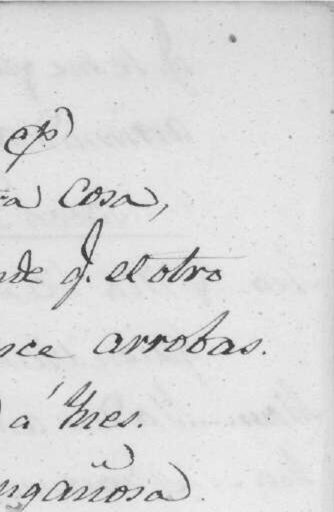 es
ra cosa,
nde q. el otro
nce arrobas.
á Ynes.
ngañosa.